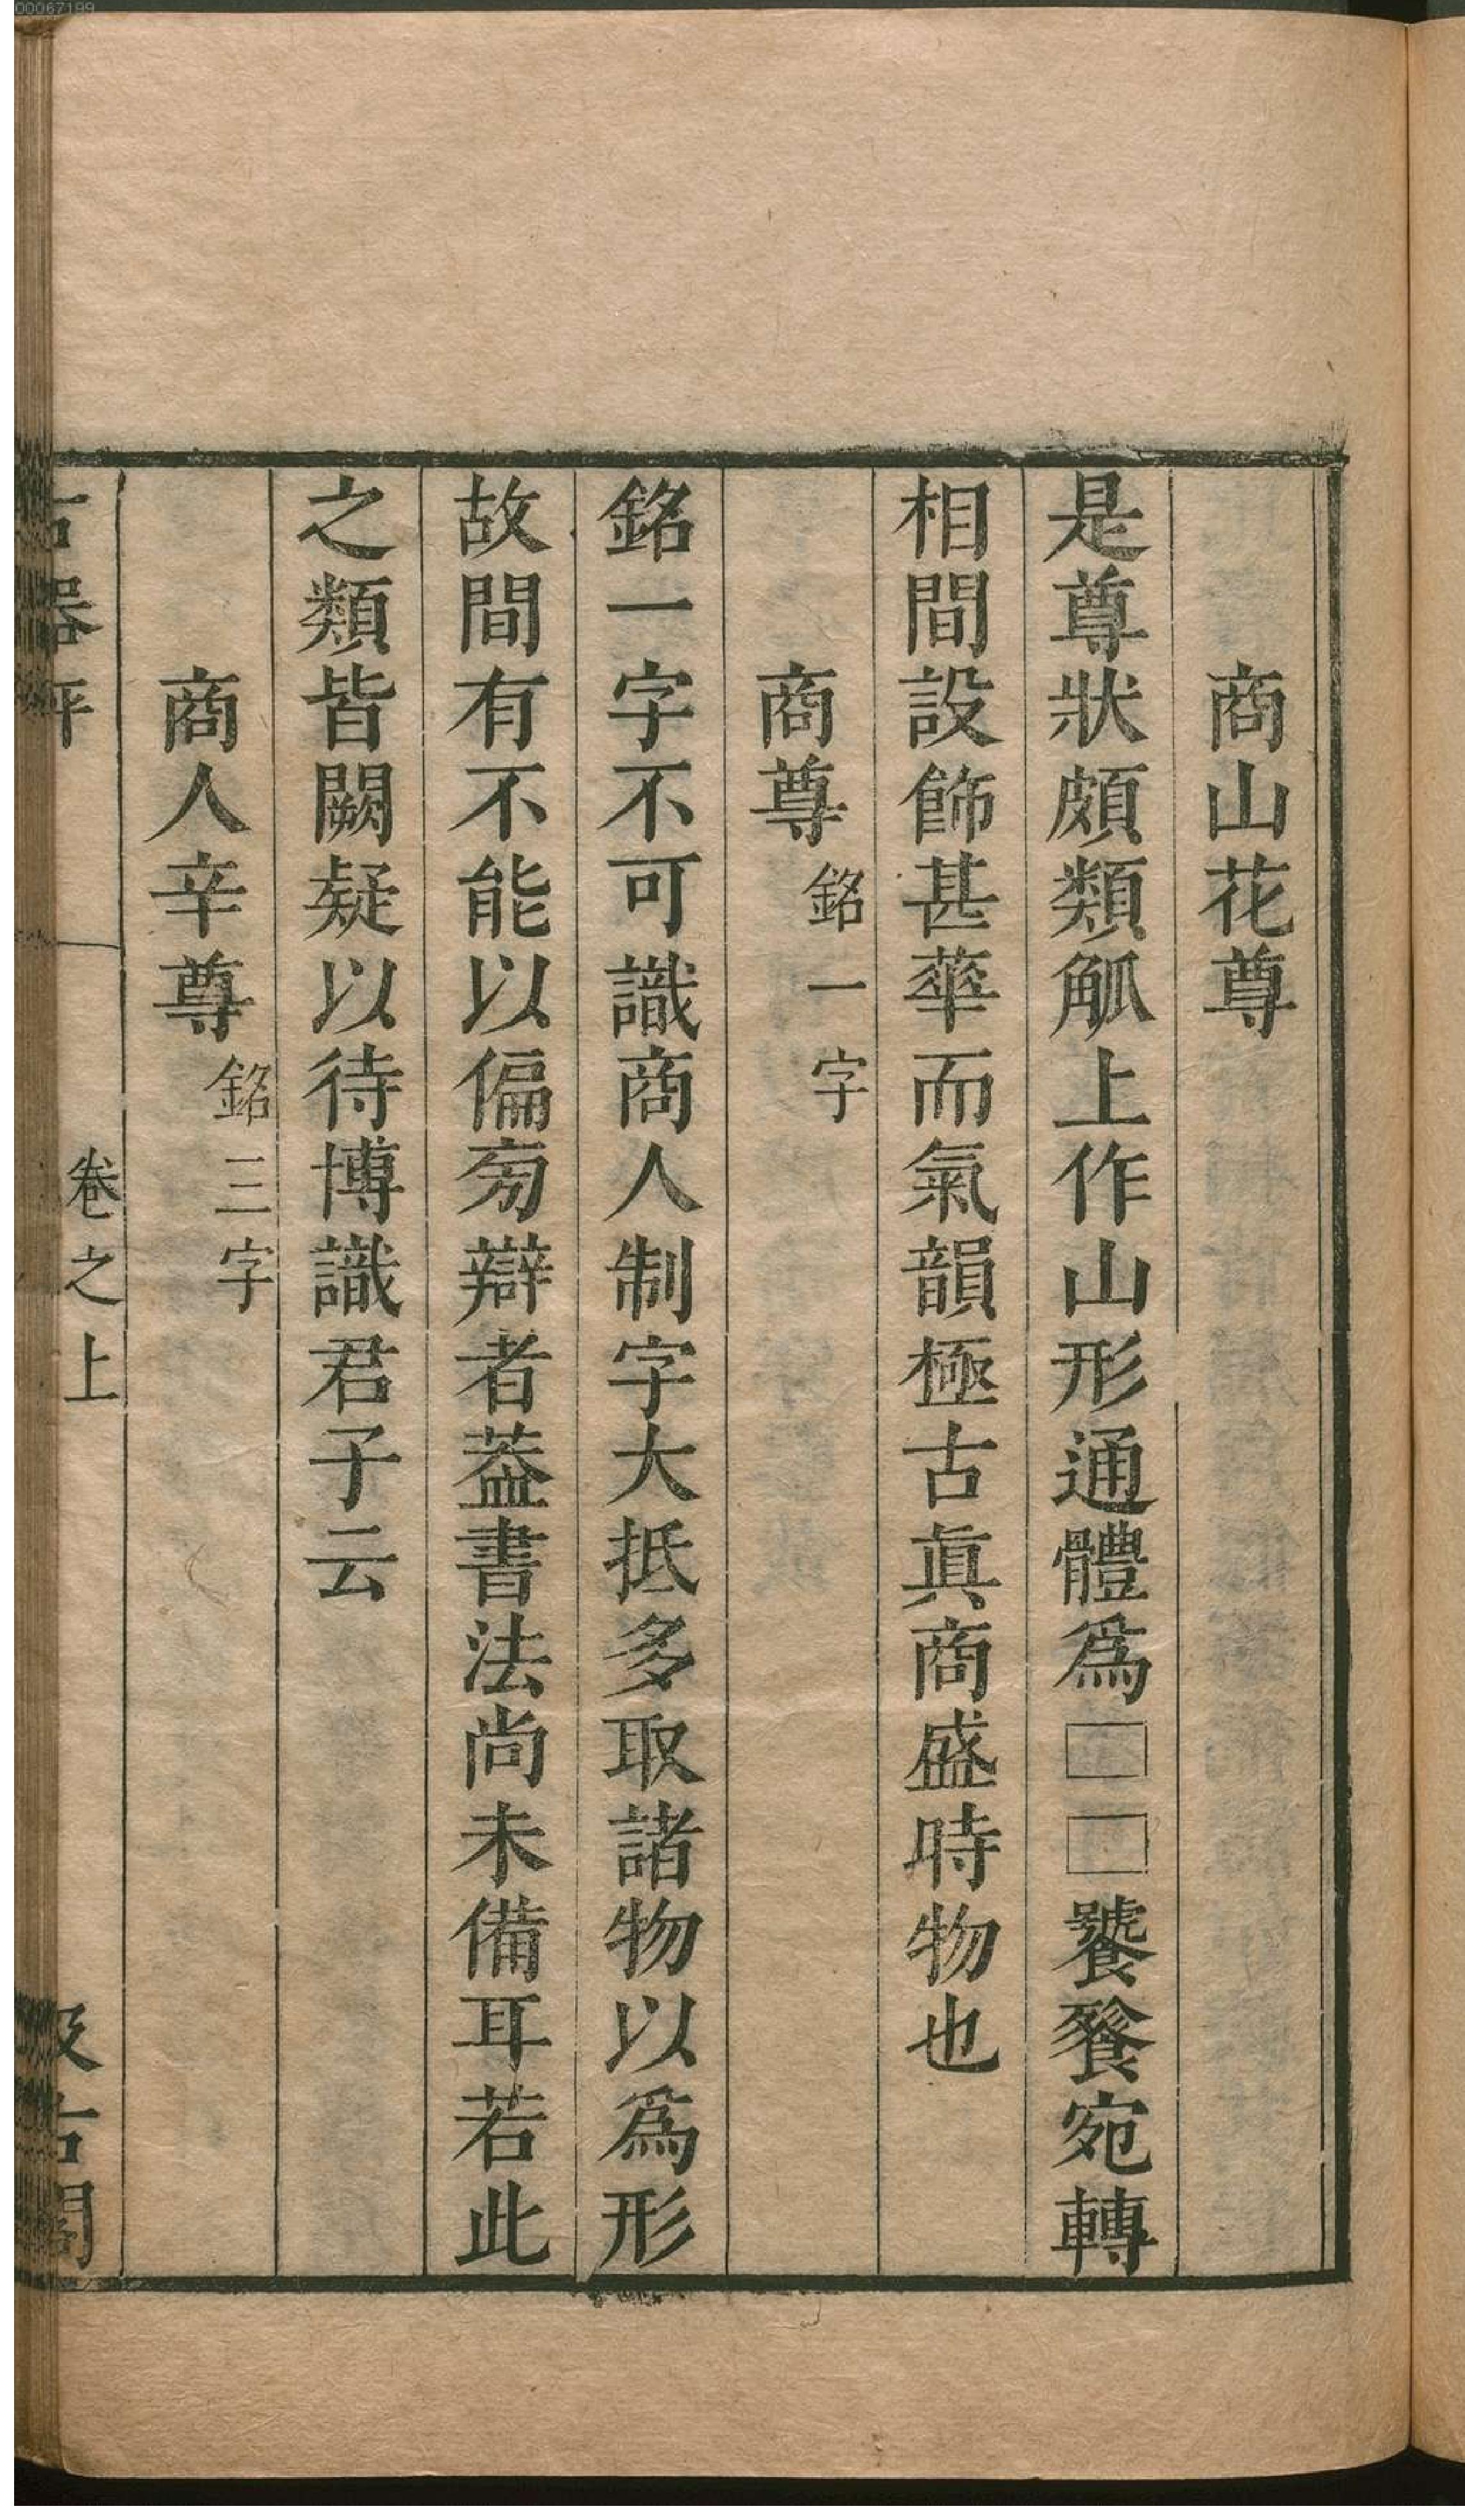 商山花尊
是尊狀頗類觚上作山形通體爲□□饕餮宛轉
相間設飾甚華而氣韻極古眞商盛時物也
商尊 銘一字
銘一字不可識商人制字大抵多取諸物以爲形
故間有不能以偏旁辯者葢書法尚未備耳若此
之類皆闕疑以待博識君子云
商人辛尊 銘三字
古器評 卷之上 汲古閣
00067199